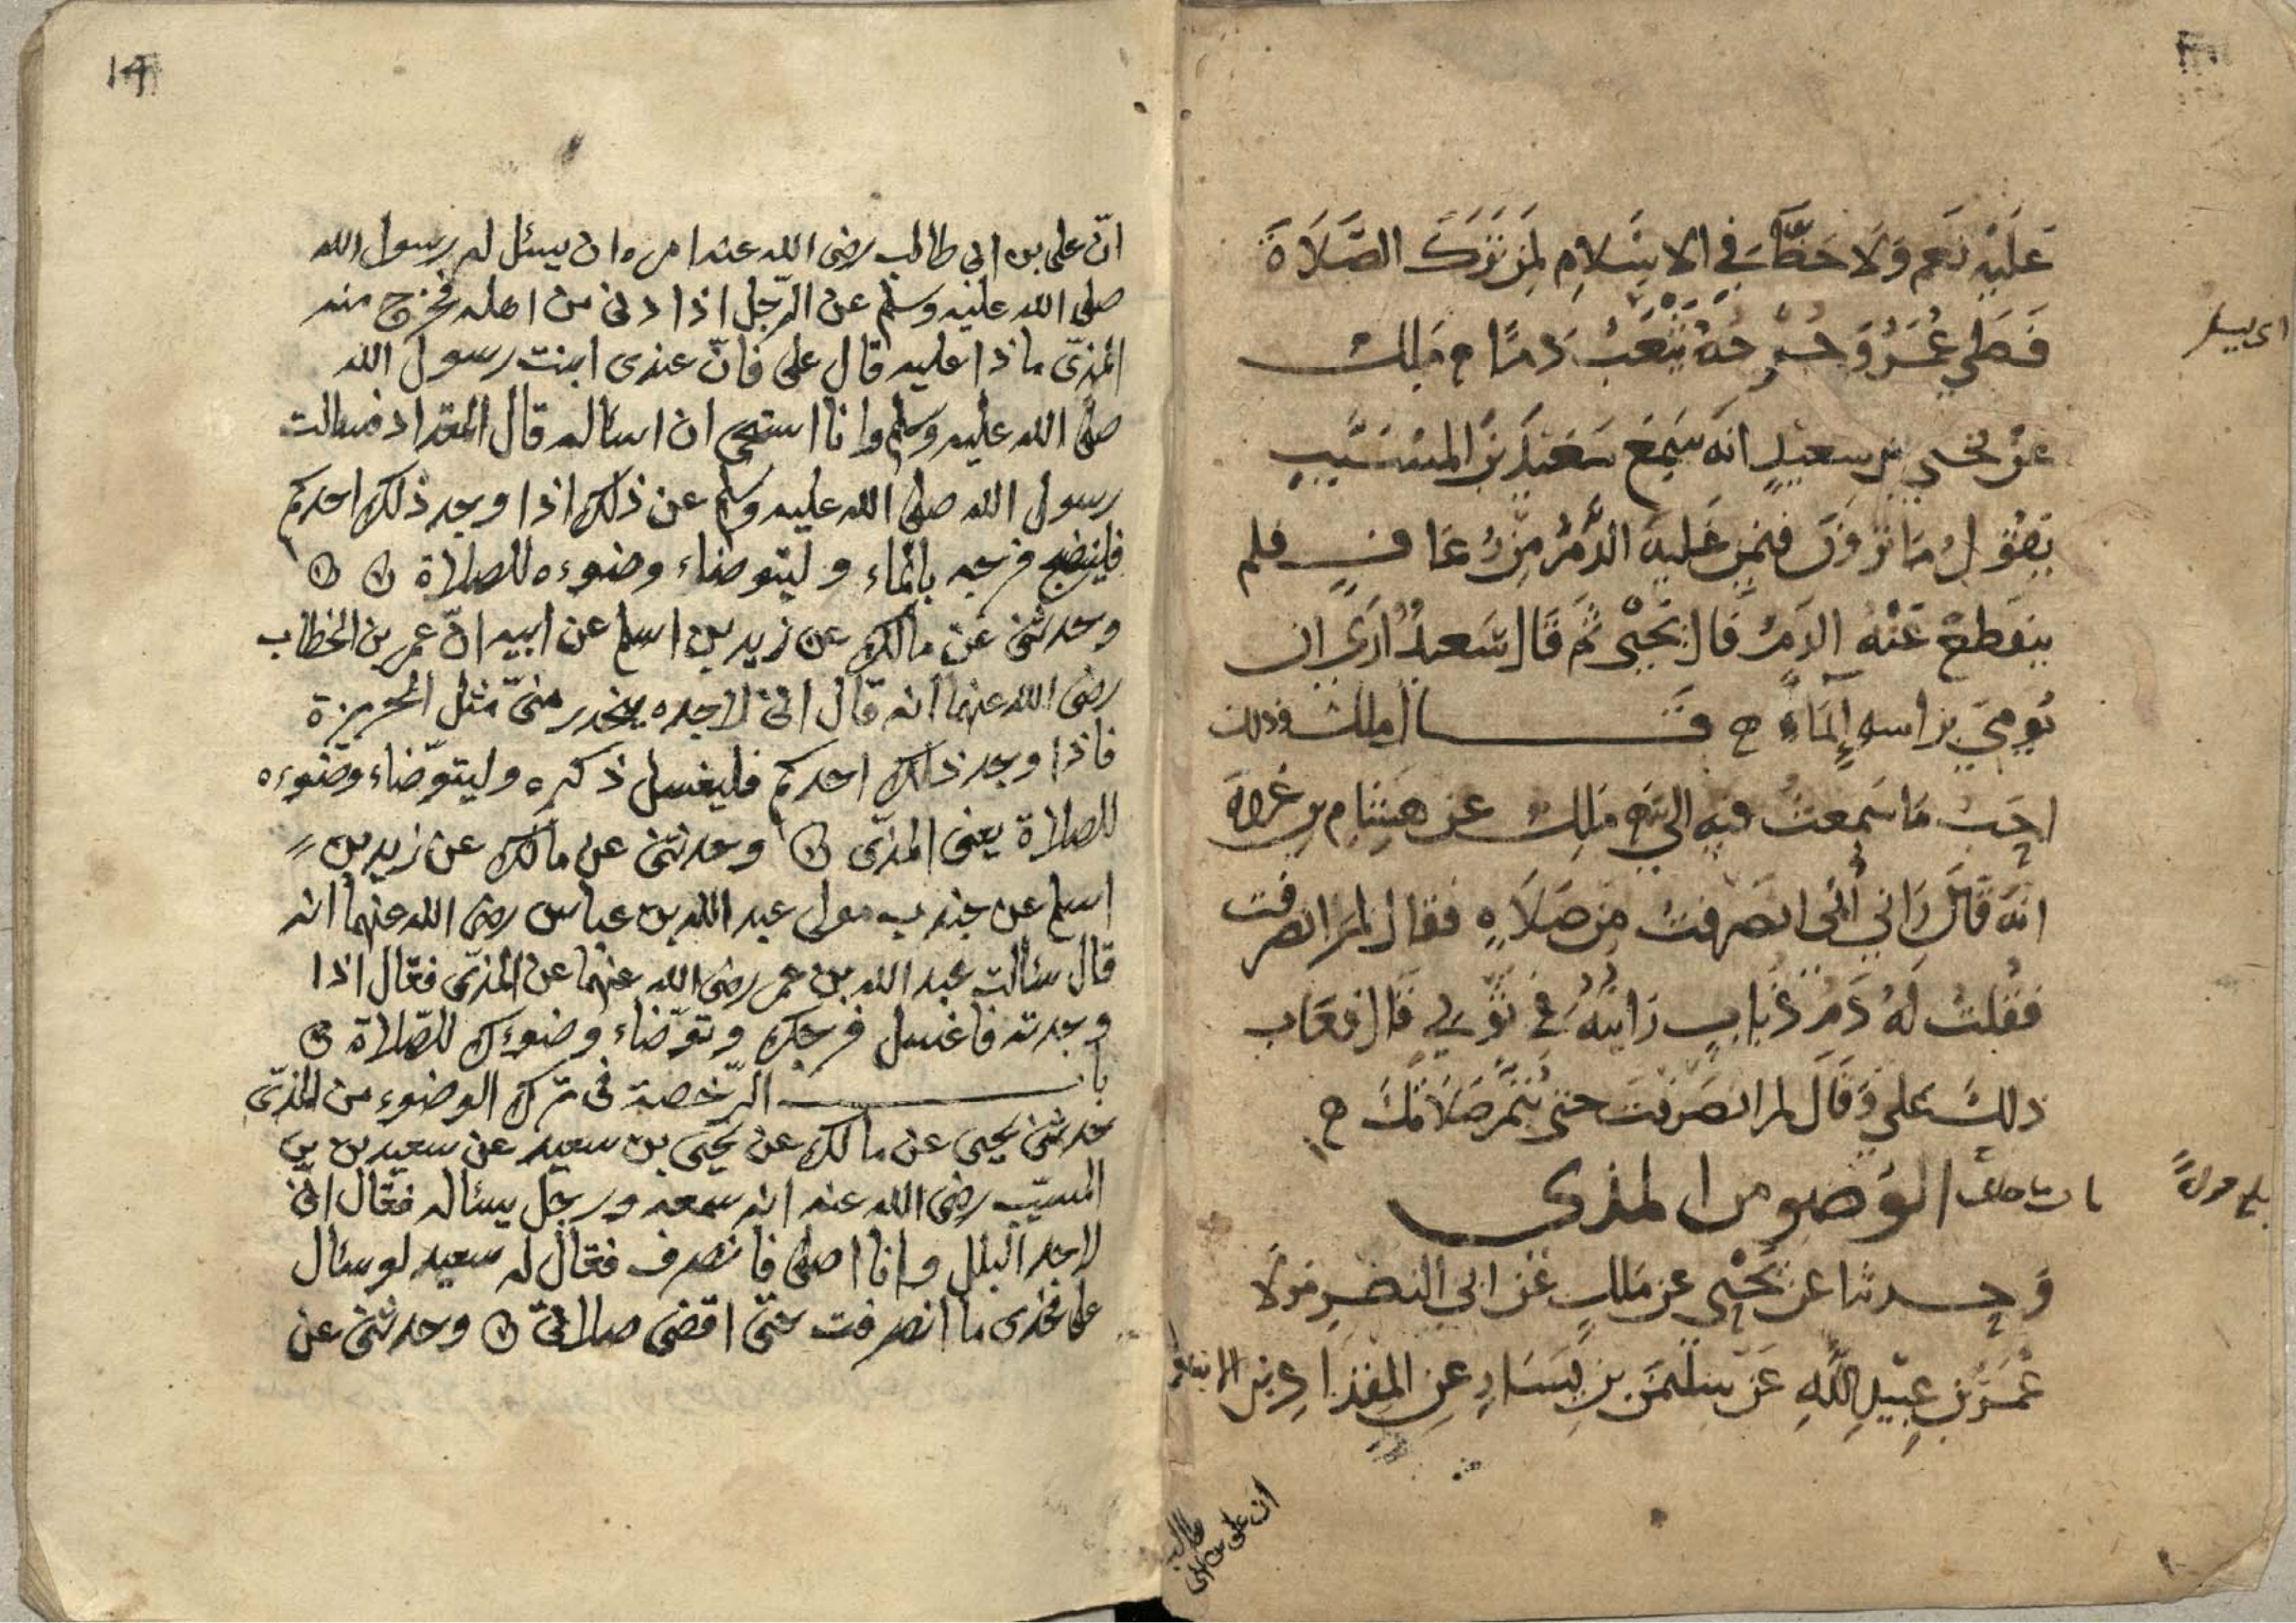 عَلَيْهِ نَعَم وَلَا حَظَّ فِي الاسْلَامِ لِمَن تَرَكَ الصَّلَاةَ
فَصَلي عُمَرُ وَجُرْحُهُ يَثْعَبُ دَمًا ح مَلِك
اى يسيل
عَنْ يحيي بن سعيدٍ انه سَمِعَ سَعِيدَ بْنَ المُسَيَّبِ
يَقُولُ مَا تَرَوْنَ فِيمَن غَلَبَهُ الدَّمُ مِنْ رُعَافٍ فلم
ينقطع عَنْهُ الدَمُ قَالَ يَحْيَى ثم قَالَ سَعِيدُ أرَى ان
يُومِيَ براسهِ إِيمَاءً ح قَــــال ملك وذلك
احَبُّ مَا سَمِعتُ فيهِ الي ح مَلِك عَن هِشَامِ بنِ عُروَةَ
انَّهُ قَالَ رَاني أَبي انصَرَفتُ مِن صَلَاةٍ فقال لم انصرفت
فَقُلتُ لَهُ دَمُ ذُبَابٍ رَايتُهُ في ثَوْبِي قَالَ فعَاب
ذلِكَ عَلي وَقَالَ لم انصَرَفْتَ حتى تُتِمَّ صَلَاتَكَ ح
باب الوُضُو من المذي
وَحدثنا عن يَحْيَى عن مَلكٍ عَن ابي النضرِ مَولَا
عُمَرَ بْنِ عُبَيْدِ اللَّهِ عَن سلَيمَن بنِ يَسَارٍ عَنِ المِقْدَادِ بن الاسود
ان على بن ابى
طالب
14
انّ على بن ابى طالب رضى الله عنه امره ان يسئل له رسول الله
صلى الله عليه وسلم عن الرّجل اذا دنى من اهله فخرج منه
المذىّ ماذا عليه قال على فانّ عندى ابنت رسول الله
صلى الله عليه وسلم وانا استحى ان اسئاله قال المقداد فسالت
رسول الله صلى الله عليه وسلم عن ذلك اذا وجد ذلك احدكم
فلينضح فرجه بالماء وليتوضاء وضوءه للصلاة
وحدثنى عن مالك عن زيد بن اسلم عن ابيه انّ عمر بن الخطاب
رضى الله عنهما انه قال انى لاجده ينحدر منىّ مثل الخريزة
فاذا وجد ذلك احدكم فليغسل ذكره وليتوضّاء وضوءه
للصلاة يعنى المذىّ وحدثنى عن مالك عن زيد بن
اسلم عن جندب مولى عبد الله بن عباس رضى الله عنهما انه
قال سئالت عبد الله بن عمر رضى الله عنهما عن المذىّ فقال اذا
وجدته فاغسل فرجك وتوضّاء وضوءك للصّلاة
بابــــ الرّخصة فى ترك الوضوء من المذىّ
حدثنى يحيى عن مالك عن يحيى بن سعيد عن سعيد بن بن
المسيّب رضى الله عنه انه سمعه ورجل يسئاله فقال انىّ
لاجد البلل وانا اصلى فانصرف فقال له سعيد لو سئال
على فخذى ما انصرفت حتىّ اقضى صلاتى وحدثنى عن